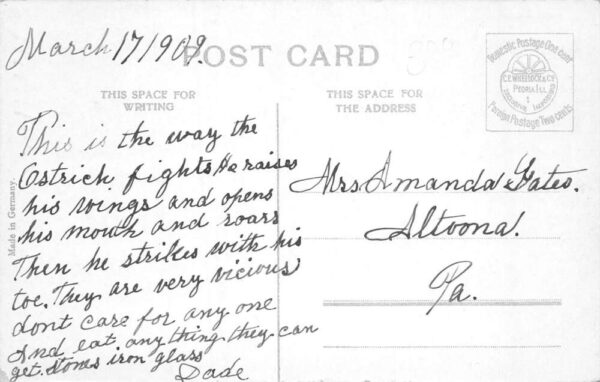 March 17/1909.
POST CARD
THIS SPACE FOR
WRITING
THIS SPACE FOR
THE ADDRESS
Domestic Postage One cent
C.E. WHEELOCK & CO
PEORIA ILL
Foreign Postage Two cents
Made in Germany.
This is the way the
Ostrich fights He raises
his wings and opens
his mouth and roars
Then he strikes with his
toe. They are very vicious
dont care for any one
And eat any thing they can
get. Stones iron glass
Dade
Mrs Amanda Yates.
Altoona.
Pa.